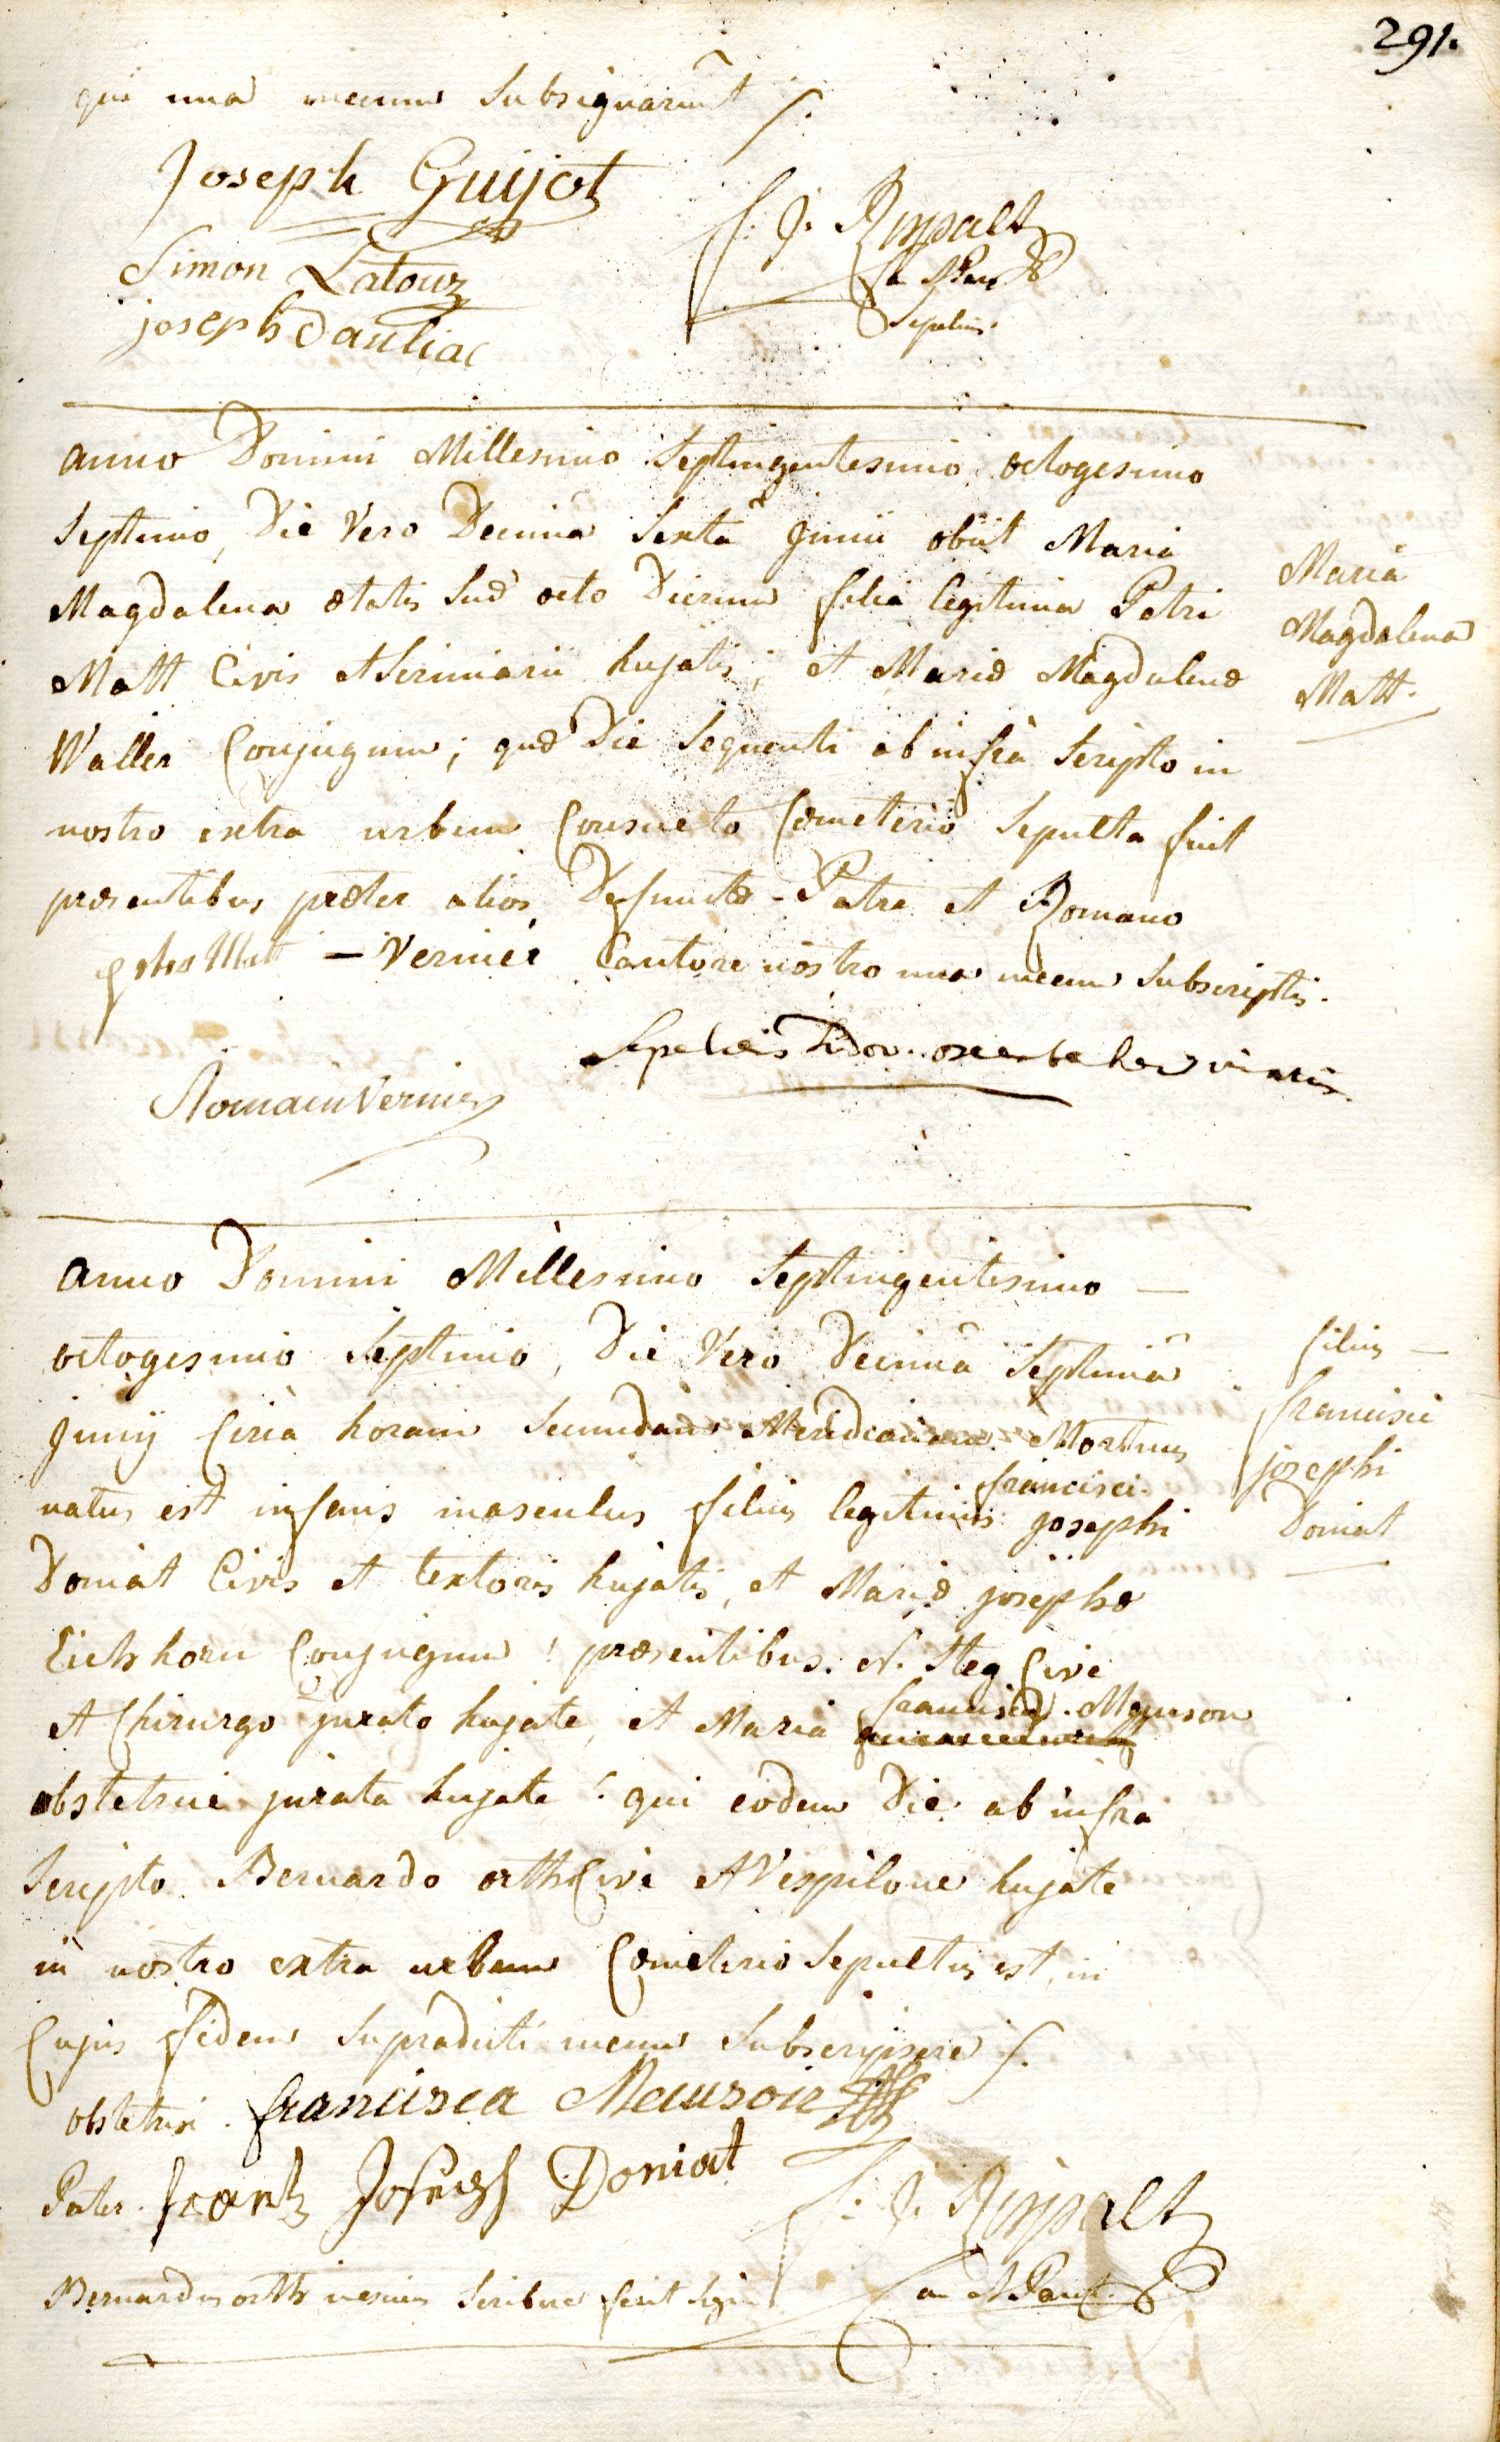 291.
qui una mecum Subsignarunt
Joseph Guijot
Simon Latour
joseph Dauliac
F: J. Rippalt
Can et Par
Sepeliens.
anno Domini Millesimo Septingentesimo octogesimo
Septimo, Die Vero Decimâ Sextâ Junii obiit Maria
Magdalena ætatis Suæ octo Dierum filia legitima Petri
Matt Civis et Scriniarii hujatis, et Mariæ Magdalenæ
Waller Conjugum; quæ Die Sequenti ab infrà Scripto in
nostro extra urbem Consueto Cœmeterio Sepulta fuit
præsentibus præter alios Defunctæ Patre et Romano
peter Matt – Vernier Cantore nostro una mecum Subscriptis.
Maria
Magdalena
Matt.
Romain Vernier
Anno Domini Millesimo Septingentesimo —
octogesimo Septimo, Die Vero Decimâ Septimâ
Junij Circà horam Secundam Meridianam Mortuus
natus est infans masculus filius legitimus francisci josephi
Doniat Civis et textoris hujatis, et Mariæ josephæ
Eichhorn Conjugum! præsentibus. N. Steg Cive
et Chirurgo jurato hujate, et Maria francisca Meuson
obstetrice jurata hujate! qui eodem Die ab infra
Scripto Bernardo orth Cive et Vespilone hujate
in nostro extra urbem Cœmeterio Sepultus est, in
Cujus fidem Supradicti mecum Subscripsere
filius —
francisci
josephi
Doniat
obstetrix. francisca Meusoir
Pater. frantz Joseph Doniat
F: J. Rippalt
Can et Par
Bernardus orth nesciens Scribere fecit Signum